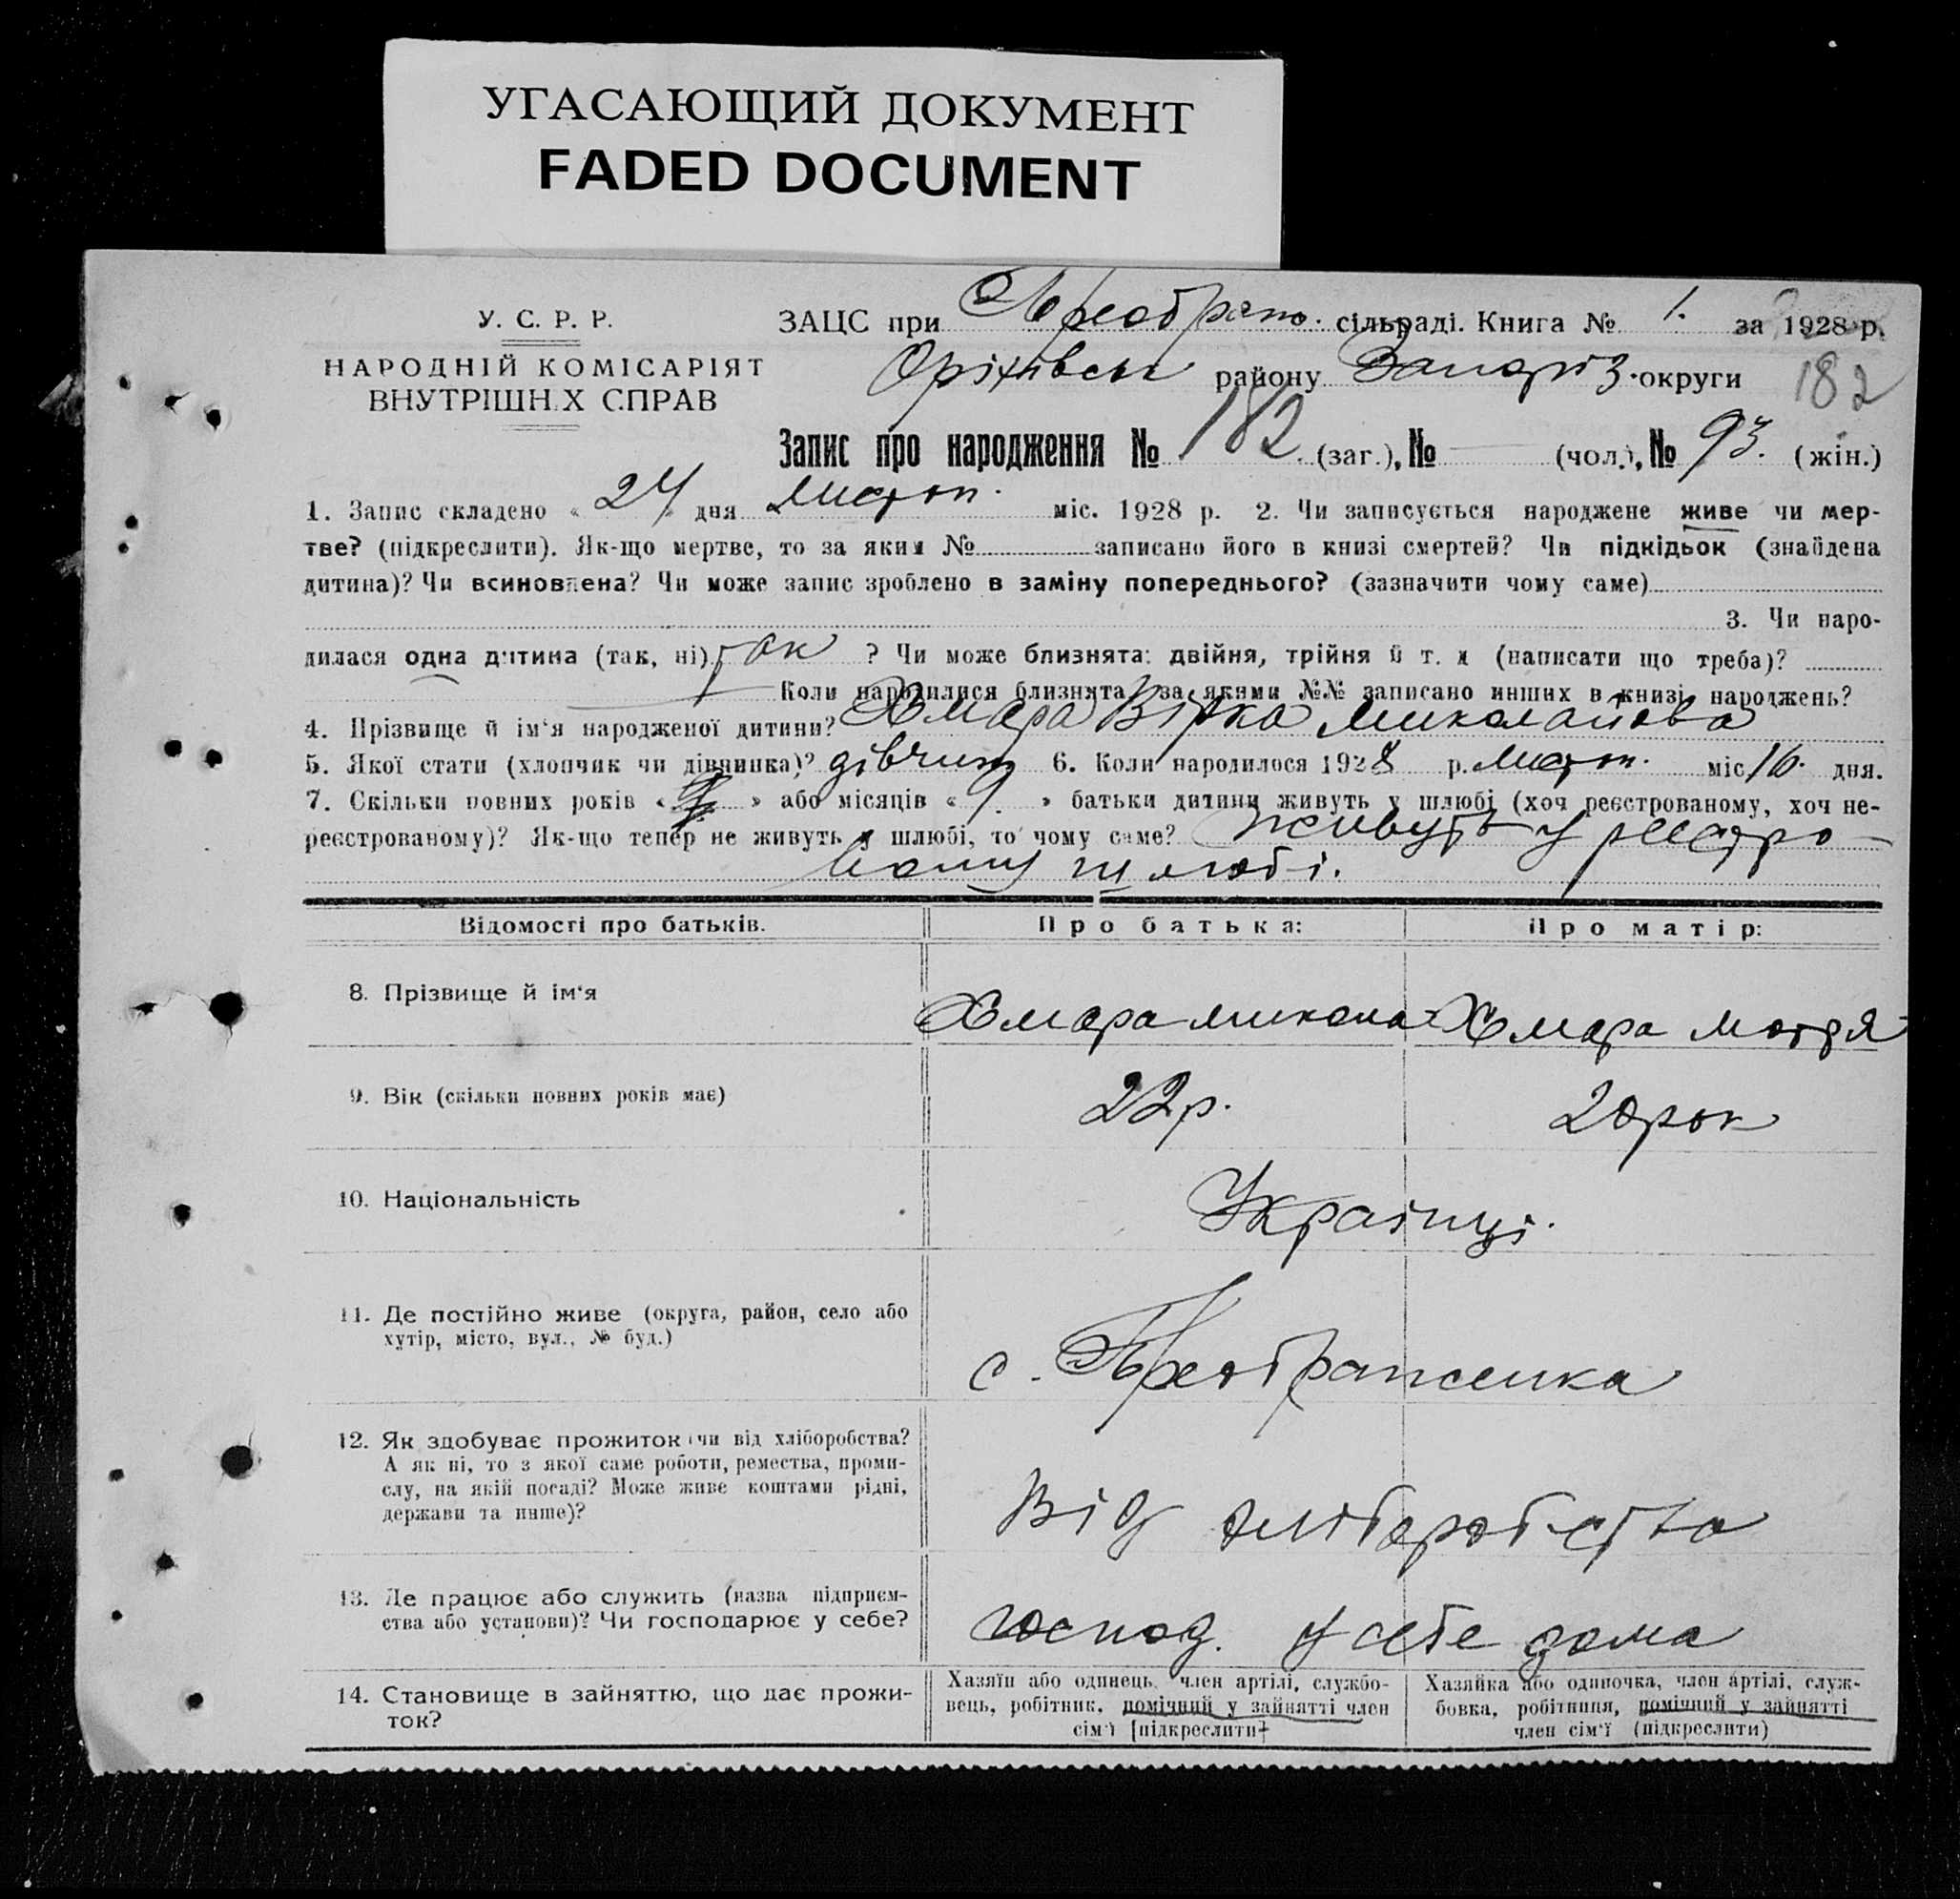 УГАСАЮЩИЙ ДОКУМЕНТ
FADED DOCUMENT
У. С. Р. Р.
НАРОДНІЙ КОМІСАРІЯТ
ВНУТРІШН.Х СПРАВ
ЗАЦС при Преображ. сільраді. Книга № 1. за 1928 р.
Оріхівськ району Запоріз. округи 182
Запис про народження № 182 (заг.), № — (чол.), № 93. (жін.)
1. Запис складено « 24 » дня листоп. міс. 1928 р. 2. Чи записується народжене живе чи мер-
тве? (підкреслити). Як-що мертве, то за яким № записано його в книзі смертей? Чи підкідьок (знайдена
дитина)? Чи всиновлена? Чи може запис зроблено в заміну попереднього? (зазначити чому саме)
3. Чи наро-
дилася одна дитина (так, ні) так ? Чи може близнята: двійня, трійня й т. и (написати що треба)?
— Коли народилися близнята, за якими №№ записано инших в книзі народжень?
4. Прізвище й ім'я народженої дитини? Хмара Вірка Миколаївва
5. Якої стати (хлопчик чи дівчинка)? дівчин 6. Коли народилося 1928 р. листоп. міс 16. дня.
7. Скільки повних років « » або місяців « 9 » батьки дитини живуть у шлюбі (хоч реєстрованому, хоч не-
реєстрованому)? Як-що тепер не живуть у шлюбі, то чому саме? живуть у реєстро
ваному шлюбі.
Відомості про батьків. Про батька: Про матір:
8. Прізвище й ім'я Хмара Микола Хмара Мотря
9. Вік (скільки повних років має) 22 р. 20 рок
10. Національність Українці.
11. Де постійно живе (округа, район, село або
хутір, місто, вул., № буд.)
с. Преображенка
12. Як здобуває прожиток (чи від хліборобства?
А як ні, то з якої саме роботи, ремества, проми-
слу, на якій посаді? Може живе коштами рідні,
держави та инше)?
Від хліборобства
13. Де працює або служить (назва підприєм-
ства або установи)? Чи господарює у себе?
господ. у себе дома
14. Становище в зайняттю, що дає прожи-
ток?
Хазяїн або одинець, член артілі, службо-
вець, робітник, помічний у зайнятті член
сім'ї [підкреслити]
Хазяйка або одиночка, член артілі, служ-
бовка, робітниця, помічний у зайнятті
член сім'ї (підкреслити)